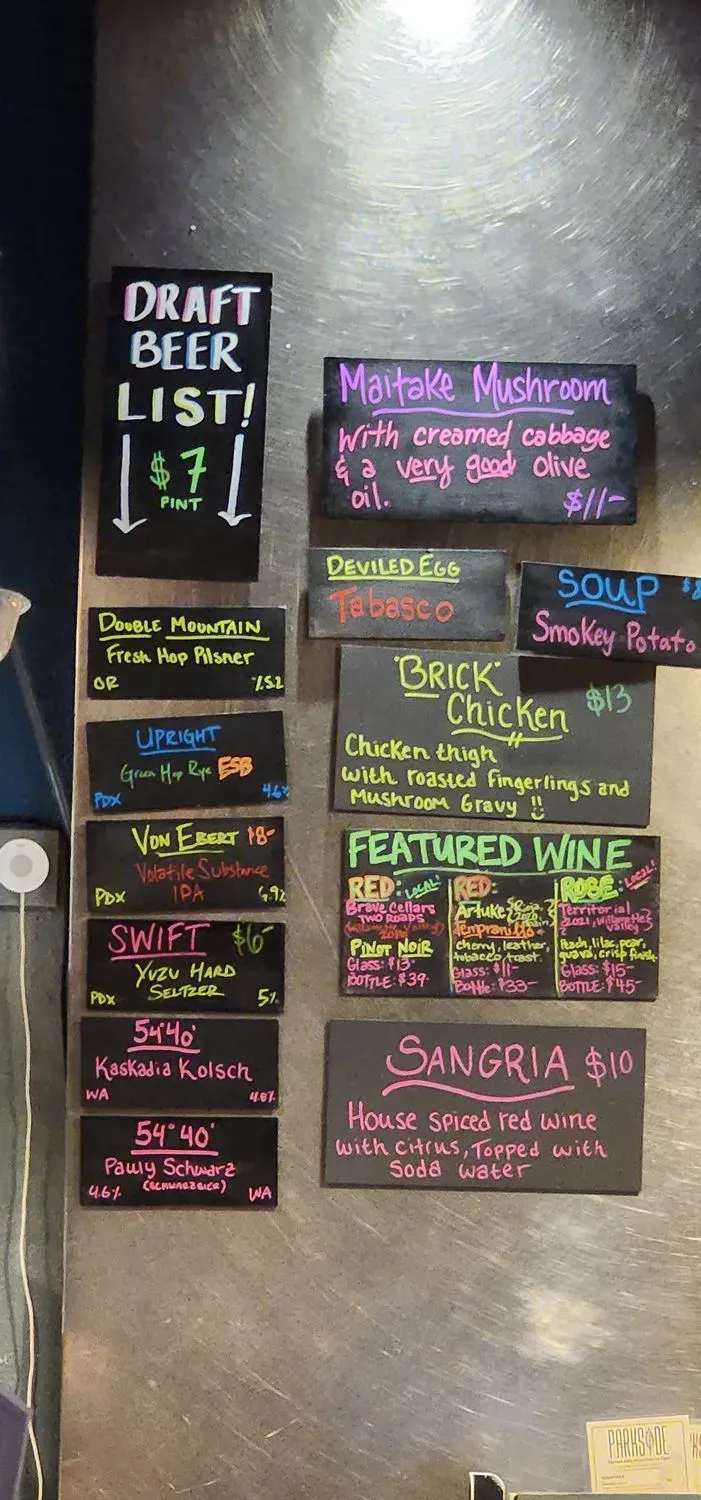 DRAFT
BEER
LIST!
$7
PINT
DOUBLE MOUNTAIN
Fresh Hop Pilsner
OR %5.2
UPRIGHT
Green Hop Rye ESB
PDX 4.6%
VON EBERT $8-
Volatile Substance
IPA
PDX 6.9%
SWIFT $6-
YUZU HARD
SELTZER
PDX 5%
54°40'
Kaskadia Kolsch
WA 4.8%
54°40'
Pauly Schwarz
(SCHWARZBIER)
4.6% WA
Maitake Mushroom
With creamed cabbage
& a very good olive
oil. $11-
DEVILED EGG
Tabasco
SOUP
Smokey Potato
"BRICK"
Chicken $13
Chicken thigh
with roasted fingerlings and
Mushroom Gravy !!
FEATURED WINE
RED: LOCAL!
Brave Cellars
TWO ROADS
PINOT NOIR
Glass: $13-
BOTTLE: $39-
RED:
Artuke
Tempranillo
cherry, leather,
tobacco, toast.
Glass: $11-
Bottle: $33-
ROSE: LOCAL!
Territorial
2021, Willamette
Valley
Peach, lilac, pear,
guava, crisp finish.
Glass: $15-
BOTTLE: $45-
SANGRIA $10
House spiced red wine
with citrus, Topped with
Soda water
PARKSIDE